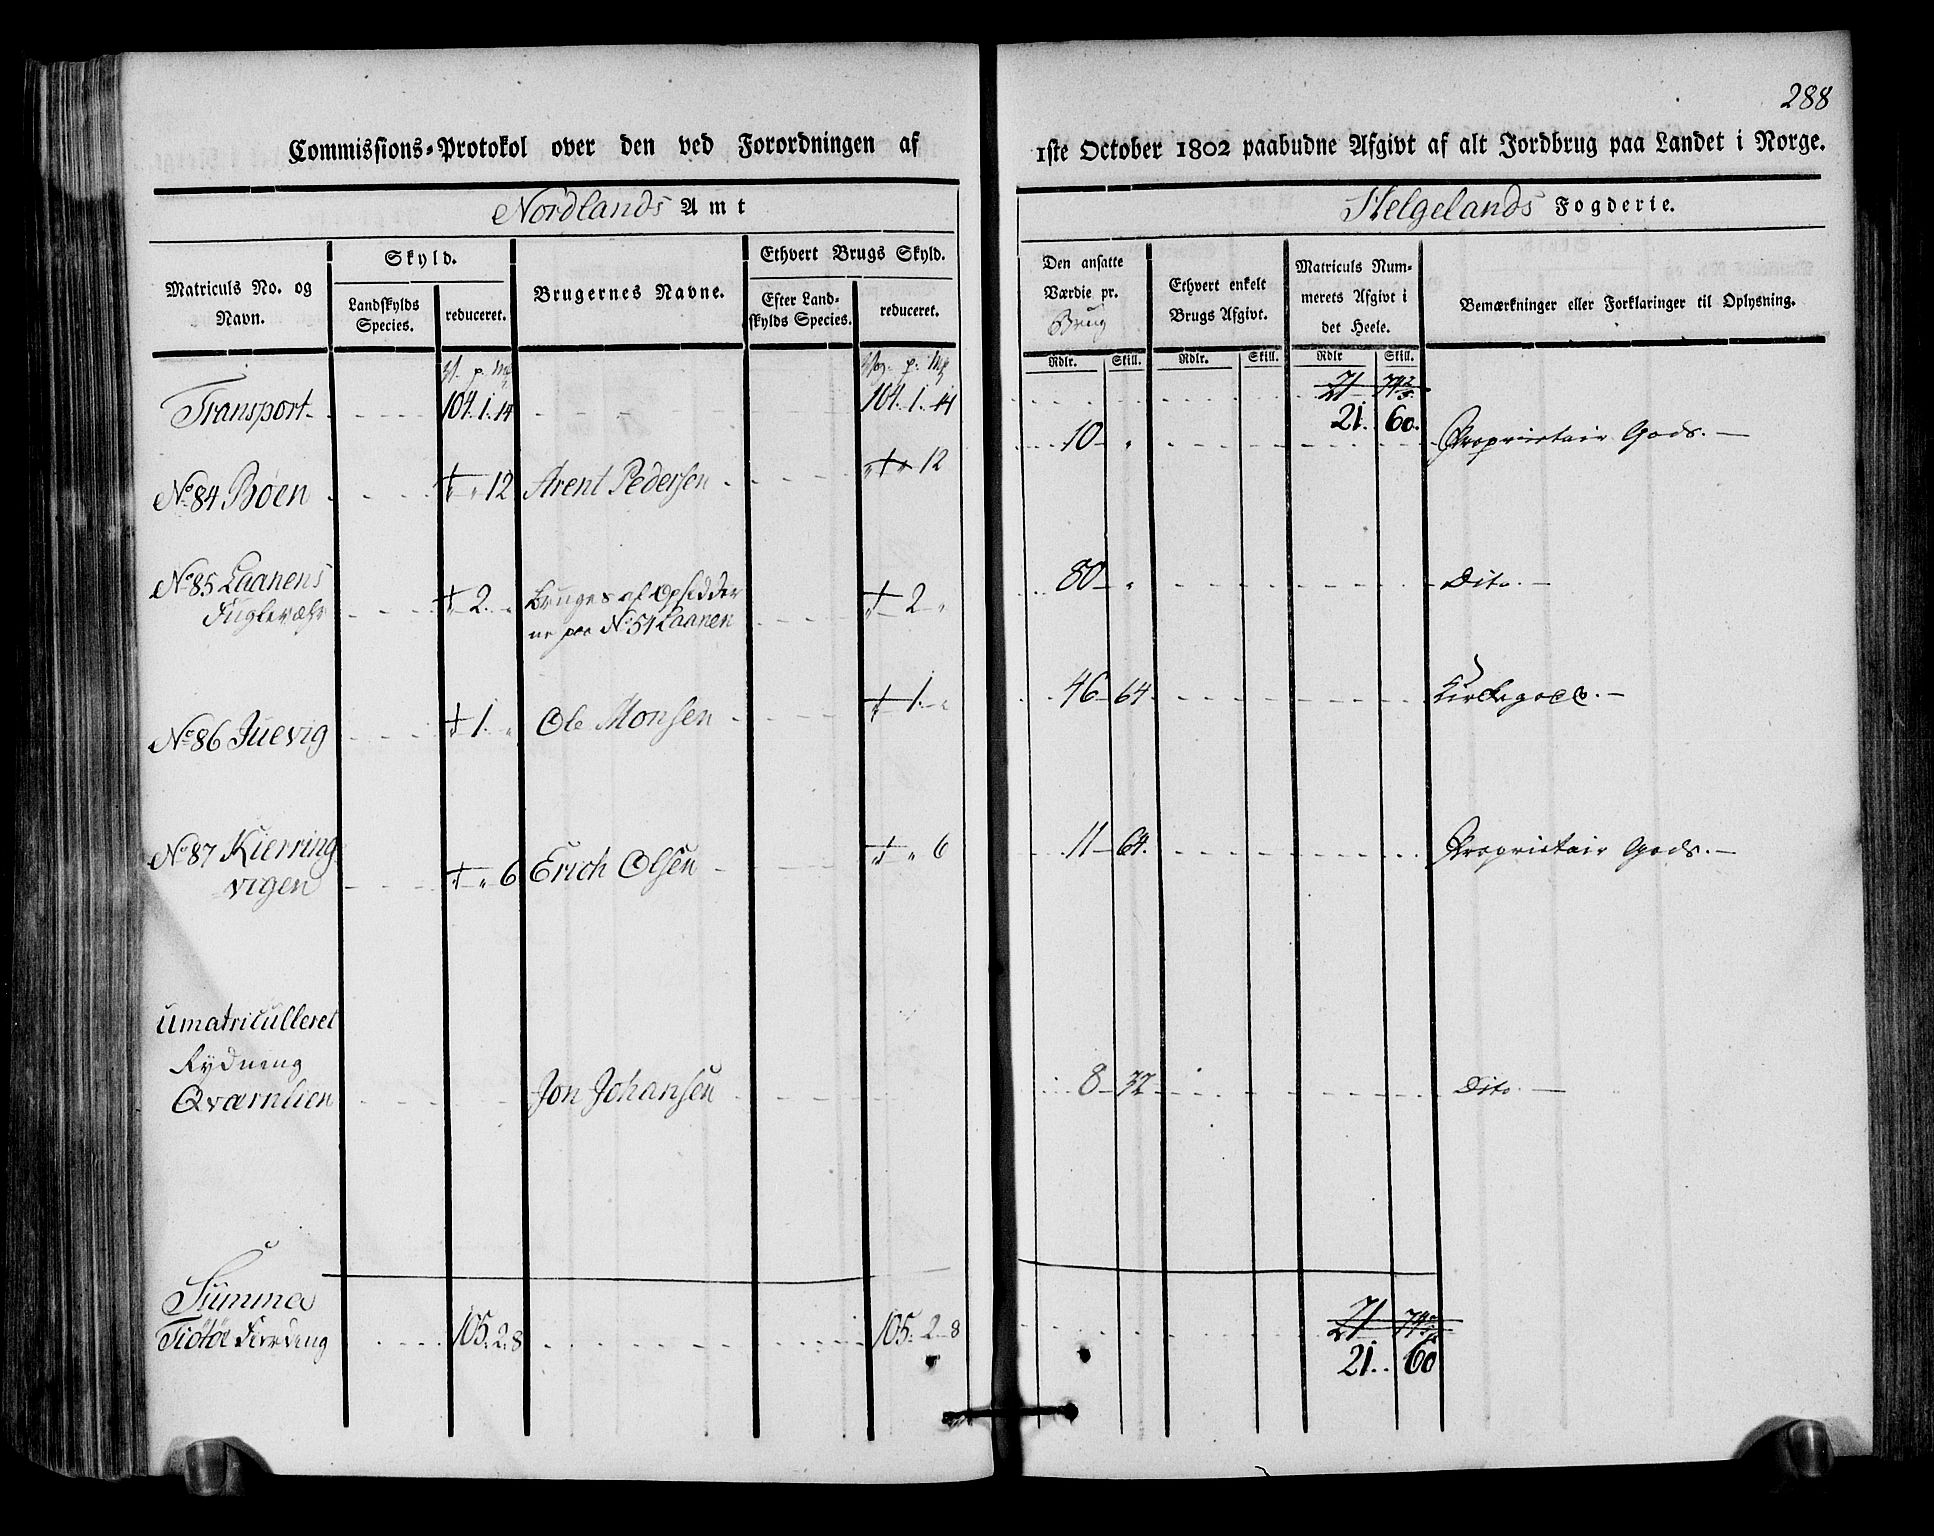 288
Commissions-Protokol over den ved Forordningen af 1ste October 1802 paabudne Afgivt af alt Jordbrug paa Landet i Norge.
Nordlands Amt
Helgelands Fogderie.
Matriculs No. og Navn.
Skyld.
Landskylds Species.
reduceret.
Brugernes Navne.
Ethvert Brugs Skyld.
Efter Landskylds Species.
reduceret.
Den ansatte Værdie pr. Brug
Ethvert enkelt Brugs Afgivt.
Matriculs Nummerets Afgivt i det Heele.
Bemærkninger eller Forklaringer til Oplysning.
Rdlr. Skill. Rdlr. Skill. Rdlr Skill.
V. p. Mk Vog. p. Mk
Transport 104. 1. 14 104. 1. 14 21. 60.
No. 84 Bøen 12 Arent Pedersen 12 10 „ Proprietair Gods.
No. 85 Laanens
Fuglevæhr 2. „ Bruges af Opsidder
ne paa No. 54 Laanen 2 „ 80 „ Dito.
No. 86 Juevig 1. „ Ole Monsen 1. „ 46 64. Kirkegods.
No. 87 Kierring
vigen „ 6 Erich Olsen „ 6 11 64. Proprietair Gods.
Umatriculleret
Rydning
Qværnlien Jon Johansen 8 32 Dito.
Summa
Tiøtøe Fierding 105. 2. 8 105. 2 8 21. 60